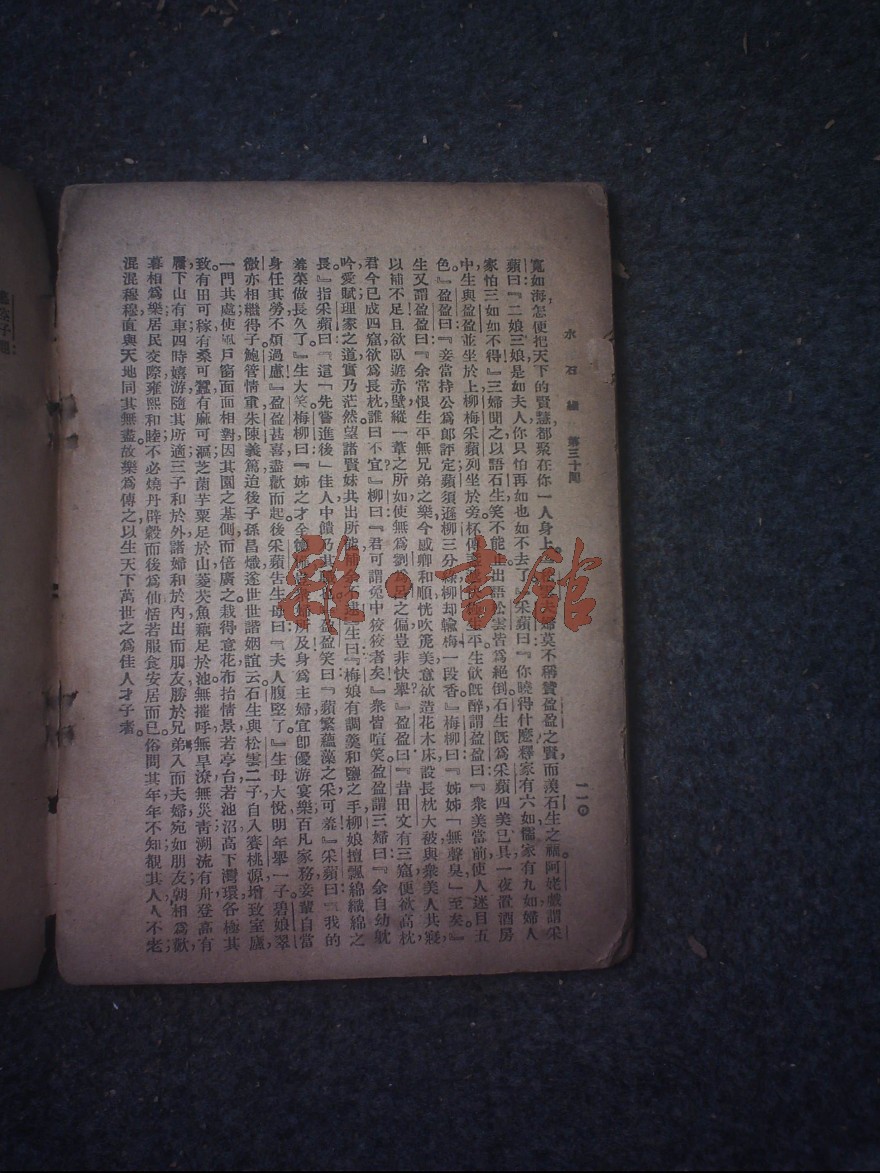 水石緣 第三十囘
一一〇
寬如海，怎便把天下的賢慧，都聚在你一人身上。夫婦莫不稱贊盈盈之賢，而羨石生之福。阿姥戲謂采
蘋曰：『二娘三娘，是如夫人，你只怕再如也如不去了。』采蘋曰：『你曉得什麽？釋家有六如，儒家有九如，婦人
家怕三如如不得。』三婦聞之以語石生，笑不能止。出語松雲，皆爲絕倒。石生旣爲采蘋四美已具，一夜置酒房
中，生與盈盈並坐於上，柳梅采蘋，列坐於旁，杯傳 平生飮旣醉，謂盈盈曰：『衆美當前，使人迷目五
色。』盈盈曰：『妾當持公爲郎評定，蘋須遜柳三分綠，柳却輸梅一段香。』梅柳曰：『姊姊「無聲臭」至矣。』
生又謂盈盈曰：『余常恨生平無兄弟之樂，今感卿和順，恍吹箎美意，欲造花木床，設長枕大被，與衆美人共寢，
以補不足，且欲臥遊赤壁，縱一葦之所如，使無爲劉爲呂之偏，豈非快舉！』盈盈曰：『昔田文有三窟，便欲高枕，
君今已成四窟，欲爲長枕，誰曰不宜？』柳曰：『君可謂兔中狡狡者矣。』衆皆喧笑。盈盈謂三婦曰：『余自幼躭
吟愛賦，理家之道，實乃茫然，望諸賢妹共出所能，補 不逮。』生曰：『梅娘有調羹和鹽之手，柳娘擅飄綿織綿之
長。』指采蘋曰：『這「先嘗進後」佳人，中饋乃其 也。』盈盈笑曰：『蘋繁蘊藻之采，可羞。』采蘋曰：『我的
羞菜做長久了。』生大笑。梅柳曰：『姊之才全 所及，身爲主婦，宜卽優游宴樂，百凡家務，妾輩自當
身任其勞，不煩過慮。』盈盈甚喜，盡歡而起。後采蘋告生母曰：『夫人腹堅了。』生母大悅。明年舉一子，碧娘翠
微亦相繼得子。鮑管情重，朱陳義篤，迨後子孫昌熾，遂世世諧姻誼云。石生與松雲二子，自入賽桃源，增致室廬，
一門共處，使風戶窗面面相對，因其園之基側而倍廣之，栽得意花，布抬情景，若亭台，若池沼，高下灣環，各極其
致。有田可稼，有桑可蠶，有麻可漚，芝菌芋粟足於山，菱芡魚藕足於池，無摧呼，無旱潦，無災靑，溯流有舟，登高有
屩，下山有車，四時嬉游，隨其所適。三子和於外，諸婦和於內，出而朋友勝於兄弟，入而夫婦宛如朋友，朝相爲歡，
暮相爲樂；居民交際，雍熙和睦，不必燒丹辟穀而後爲仙，恬若服食安居而已。俗間其年年不知，覩其人人不老，
混混穆穆，直與天地同其無盡。故樂爲傳之，以生天下萬世之爲佳人才子者。